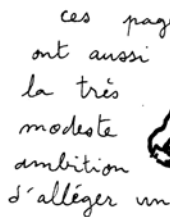 ces pag
ont aussi
la très
modeste
ambition
d'alléger un